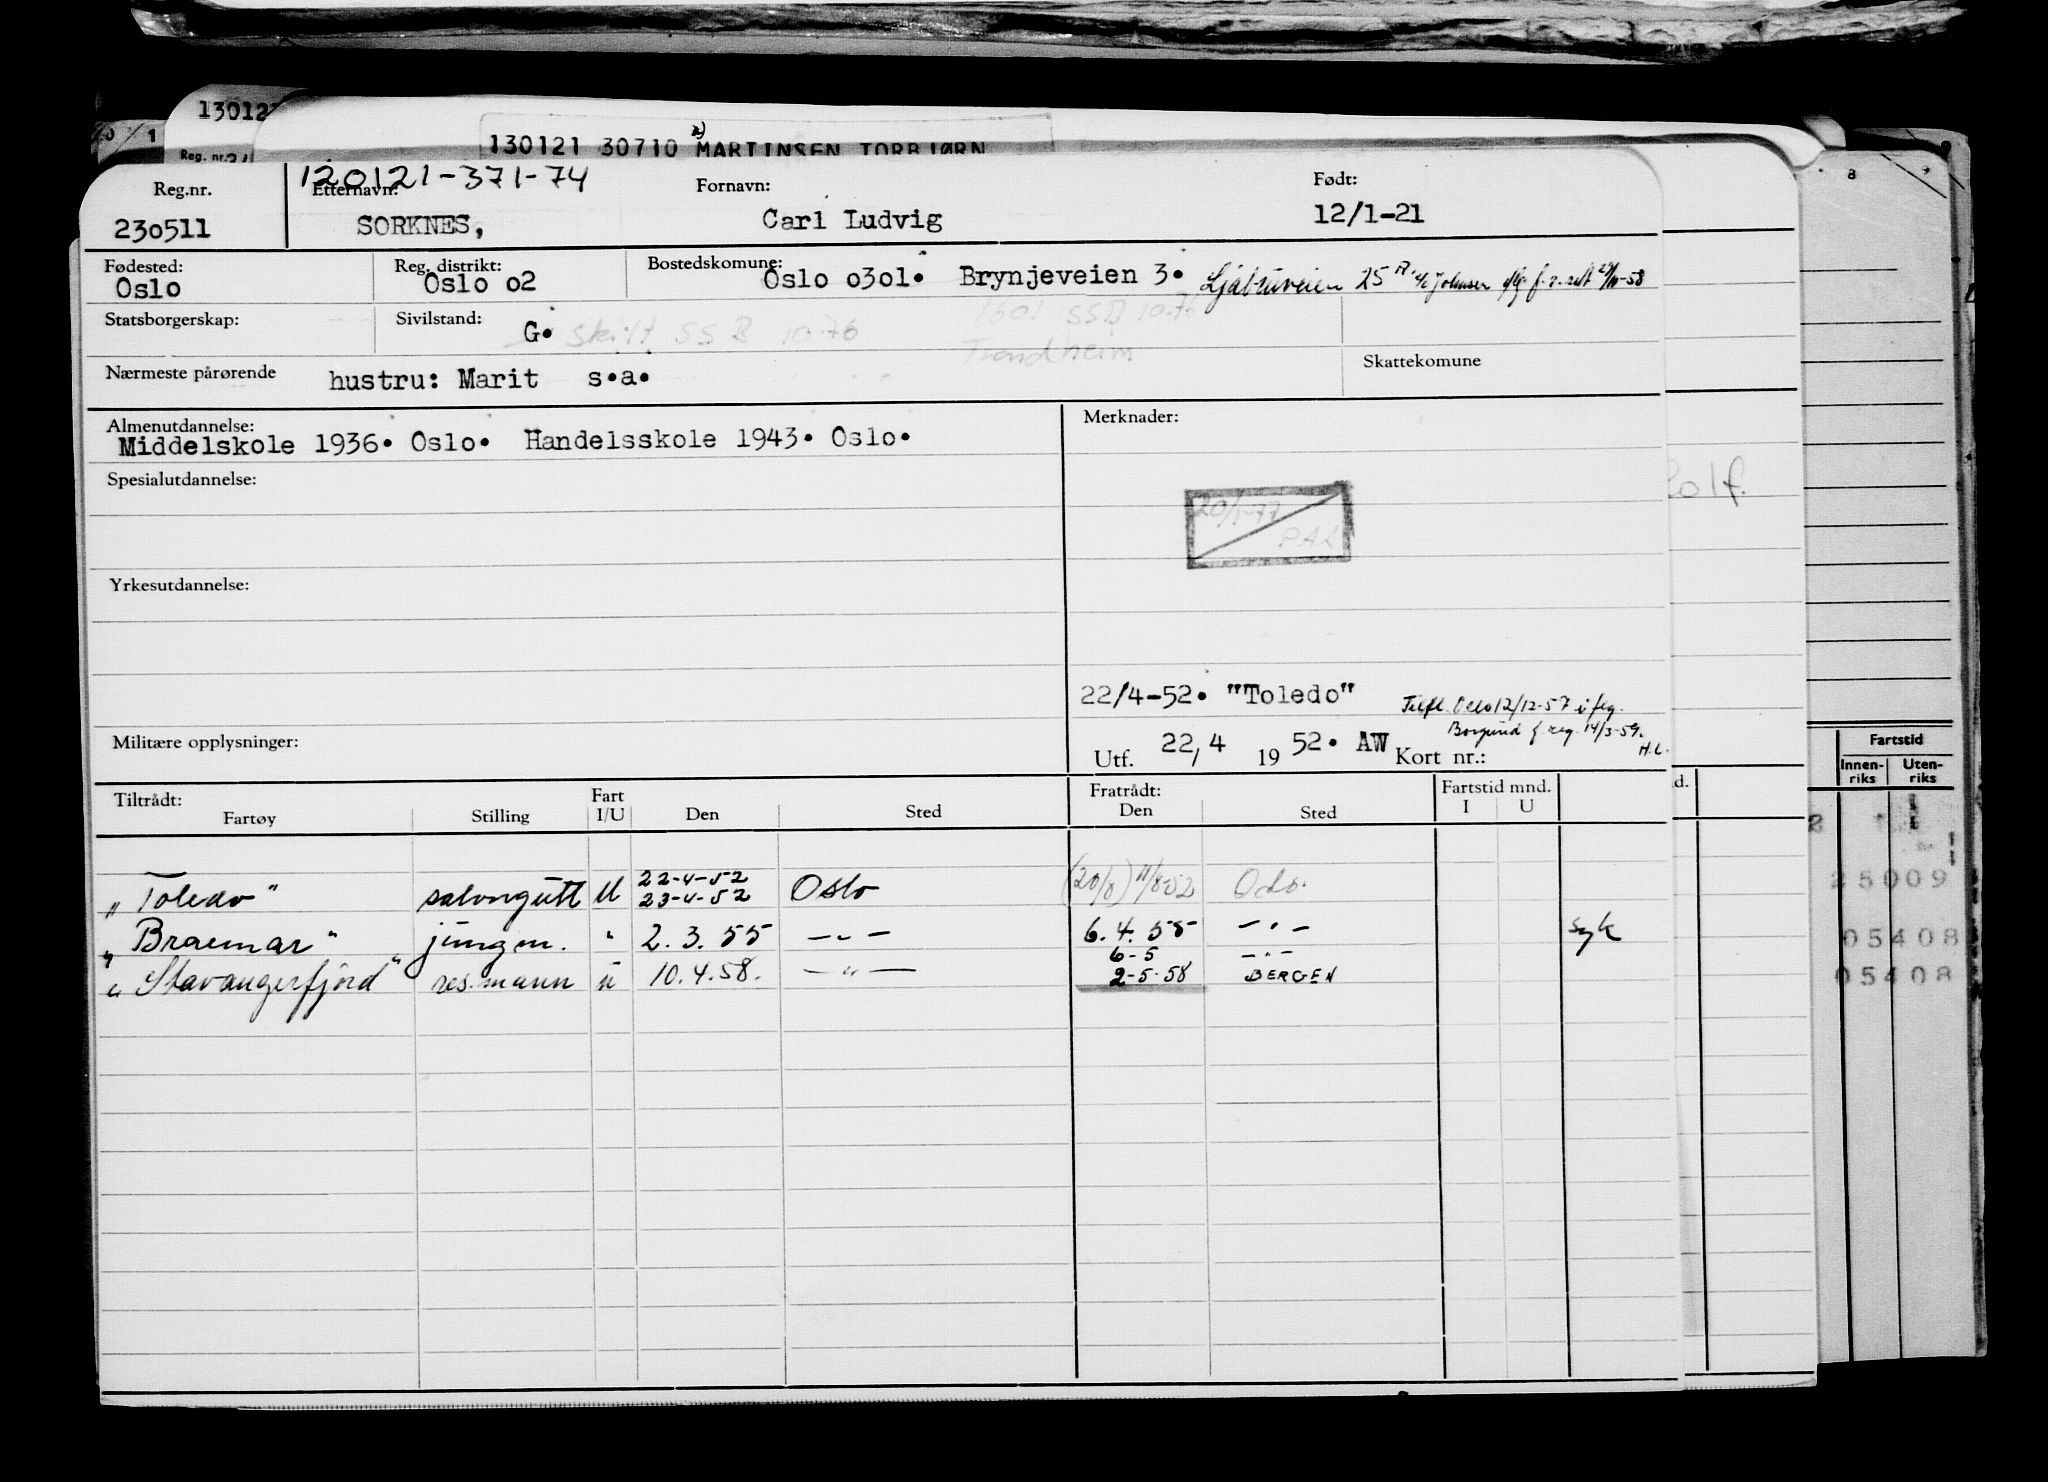 13012
130121 30710 MARTINSEN TORBJØRN
Reg. nr.
120121-371-74
Reg.nr. Etternavn: Fornavn: Født:
230511 SORKNES, Carl Ludvig 12/1-21
Fødested: Reg. distrikt: Bostedskomune:
Oslo Oslo 02 Oslo 0301. Brynjeveien 3. Ljabruveien 25
Statsborgerskap: Sivilstand: G. Skilt SSB 10-76 1601 SSB 10-76
Trondheim
Nærmeste pårørende hustru: Marit s.a. Skattekomune
Almenutdannelse: Merknader:
Middelskole 1936. Oslo. Handelsskole 1943. Oslo.
Spesialutdannelse:
20/1-77
Yrkesutdannelse:
22/4-52. "Toledo" Oslo 12/12-57
Borgund f. reg. 14/3-59.
H.L.
Militære opplysninger: Utf. 22,4 1952. AW Kort nr.:
Tiltrådt: Fratrådt: Fartstid mnd.
Fartøy Stilling Fart I/U Den Sted Den Sted I U
22-4-52
"Toledo" salongutt U 23-4-52 Oslo (20/8) 11/8-52 Oslo
"Braemar" jungm. " 2.3.55 —"— 6.4.55 —"— syk
6-5 —"—
"Stavangerfjord" res.mann U 10.4.58. —"— 2-5-58 BERGEN
olf.
d.
Fartstid
Innen-riks Uten-riks
25009
05408
05408